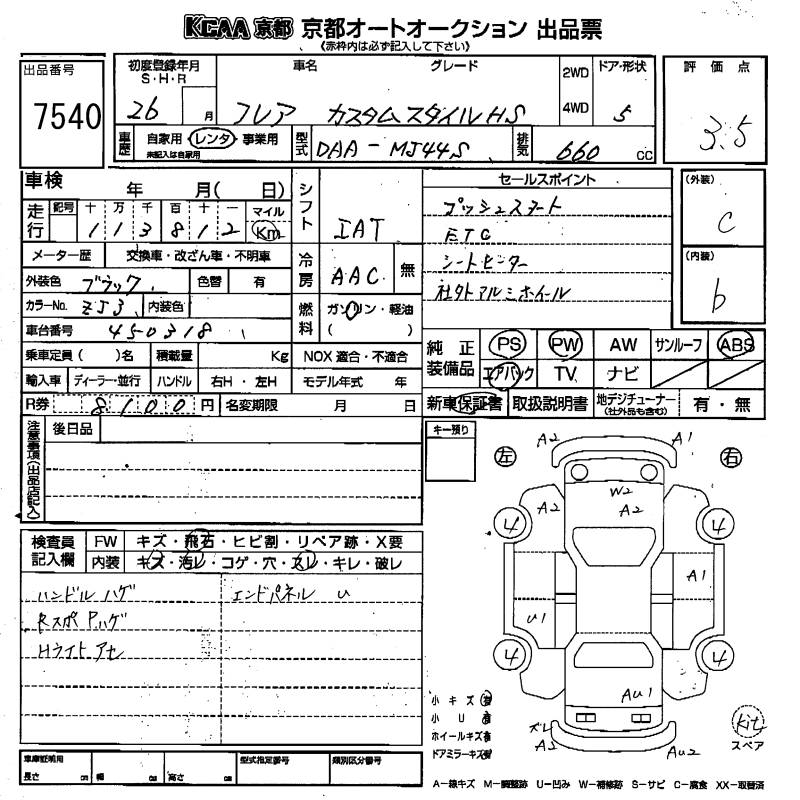 KCAA 京都 京都オートオークション 出品票
《赤枠内は必ず記入して下さい》
出品番号
7540
初度登録年月 S・H・R
26 月
車名 グレード
フレア カスタムスタイルHS
2WD
4WD
ドア・形状
5
評価点
3.5
車歴 自家用・レンタ・事業用
未記入は自家用
型式 DAA-MJ44S
排気 660 cc
車検 年 月( 日)
走行 記号 十 万 千 百 十 一 マイル
1 1 3 8 1 2 Km
メーター歴 交換車・改ざん車・不明車
外装色 ブラック 色替 有
カラーNo. ZJ3 内装色
車台番号 450318
乗車定員( )名 積載量 Kg
輸入車 ディーラー・並行 ハンドル 右H・左H
R券 8100円 名変期限 月 日
シフト IAT
冷房 AAC 無
燃料 ガソリン・軽油
( )
NOX 適合・不適合
モデル年式 年
セールスポイント
プッシュスタート
ETC
シートヒーター
社外アルミホイール
(外装)
C
(内装)
b
純正装備品 PS PW AW サンルーフ ABS
エアバック TV ナビ
新車保証書 取扱説明書 地デジチューナー(社外品も含む) 有・無
注意事項(出品店記入)
後日品
キー預り
検査員記入欄
FW キズ・飛石・ヒビ割・リペア跡・X要
内装 キズ・汚レ・コゲ・穴・スレ・キレ・破レ
ハンドル ハゲ エンドパネル U
RスポPハゲ
Hライト アセ
左 右
A2 A1
W2
A2 A2
4 4
A1
U1
4 4
AU1
ズレ
A2 AU2
小キズ 有
小U 有
ホイールキズ有
ドアミラーキズ有
kit
スペア
車庫証明用
長さ cm 幅 cm 高さ cm
型式指定番号 類別区分番号
A-線キズ M-調整跡 U-凹み W-補修跡 S-サビ C-腐食 XX-取替済